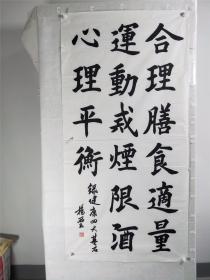 合理膳食適量
運動戒煙限酒
心理平衡
錄健康四大基石